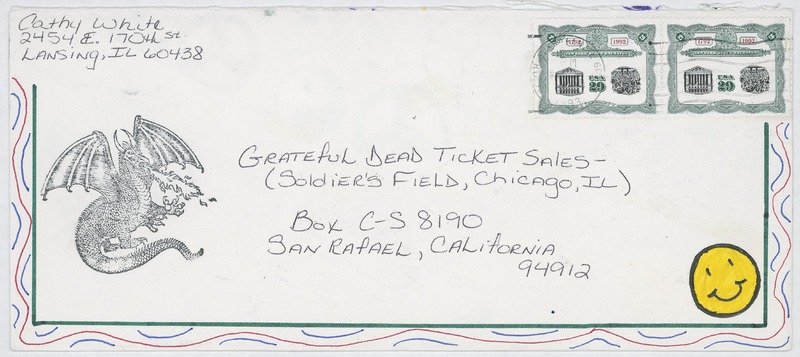 Cathy White
2454 E. 170th St.
Lansing, IL 60438
1792 1992
USA
29
1792 1992
USA
29
Grateful Dead Ticket Sales-
(Soldier's Field, Chicago, IL)
Box C-S 8190
San Rafael, California
94912